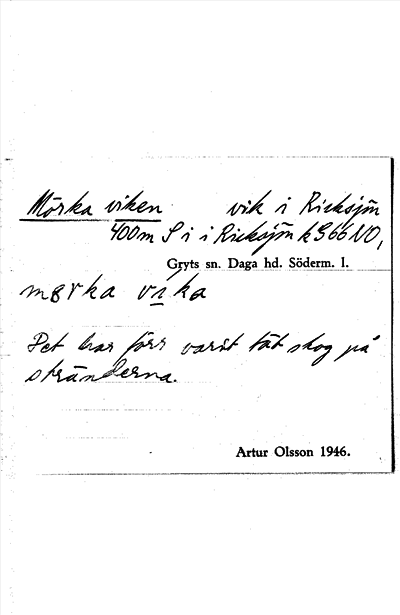 Mörka viken vik i Ricksjön
400m S i i Ricksjön k G66 NO,
Gryts sn. Daga hd. Söderm. l.
mørka vika
Det har förr varit tät skog på
stränderna.
Artur Olsson 1946.